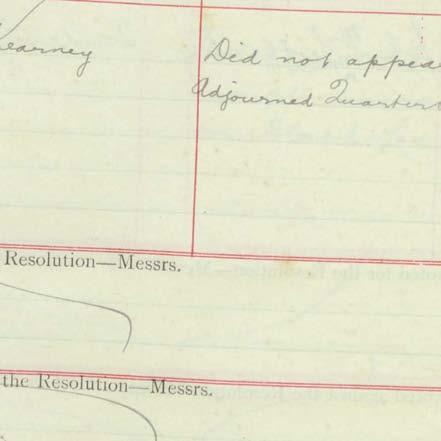 Kearney
Did not appear
Adjourned Quarter
Resolution—Messrs.
the Resolution—Messrs.